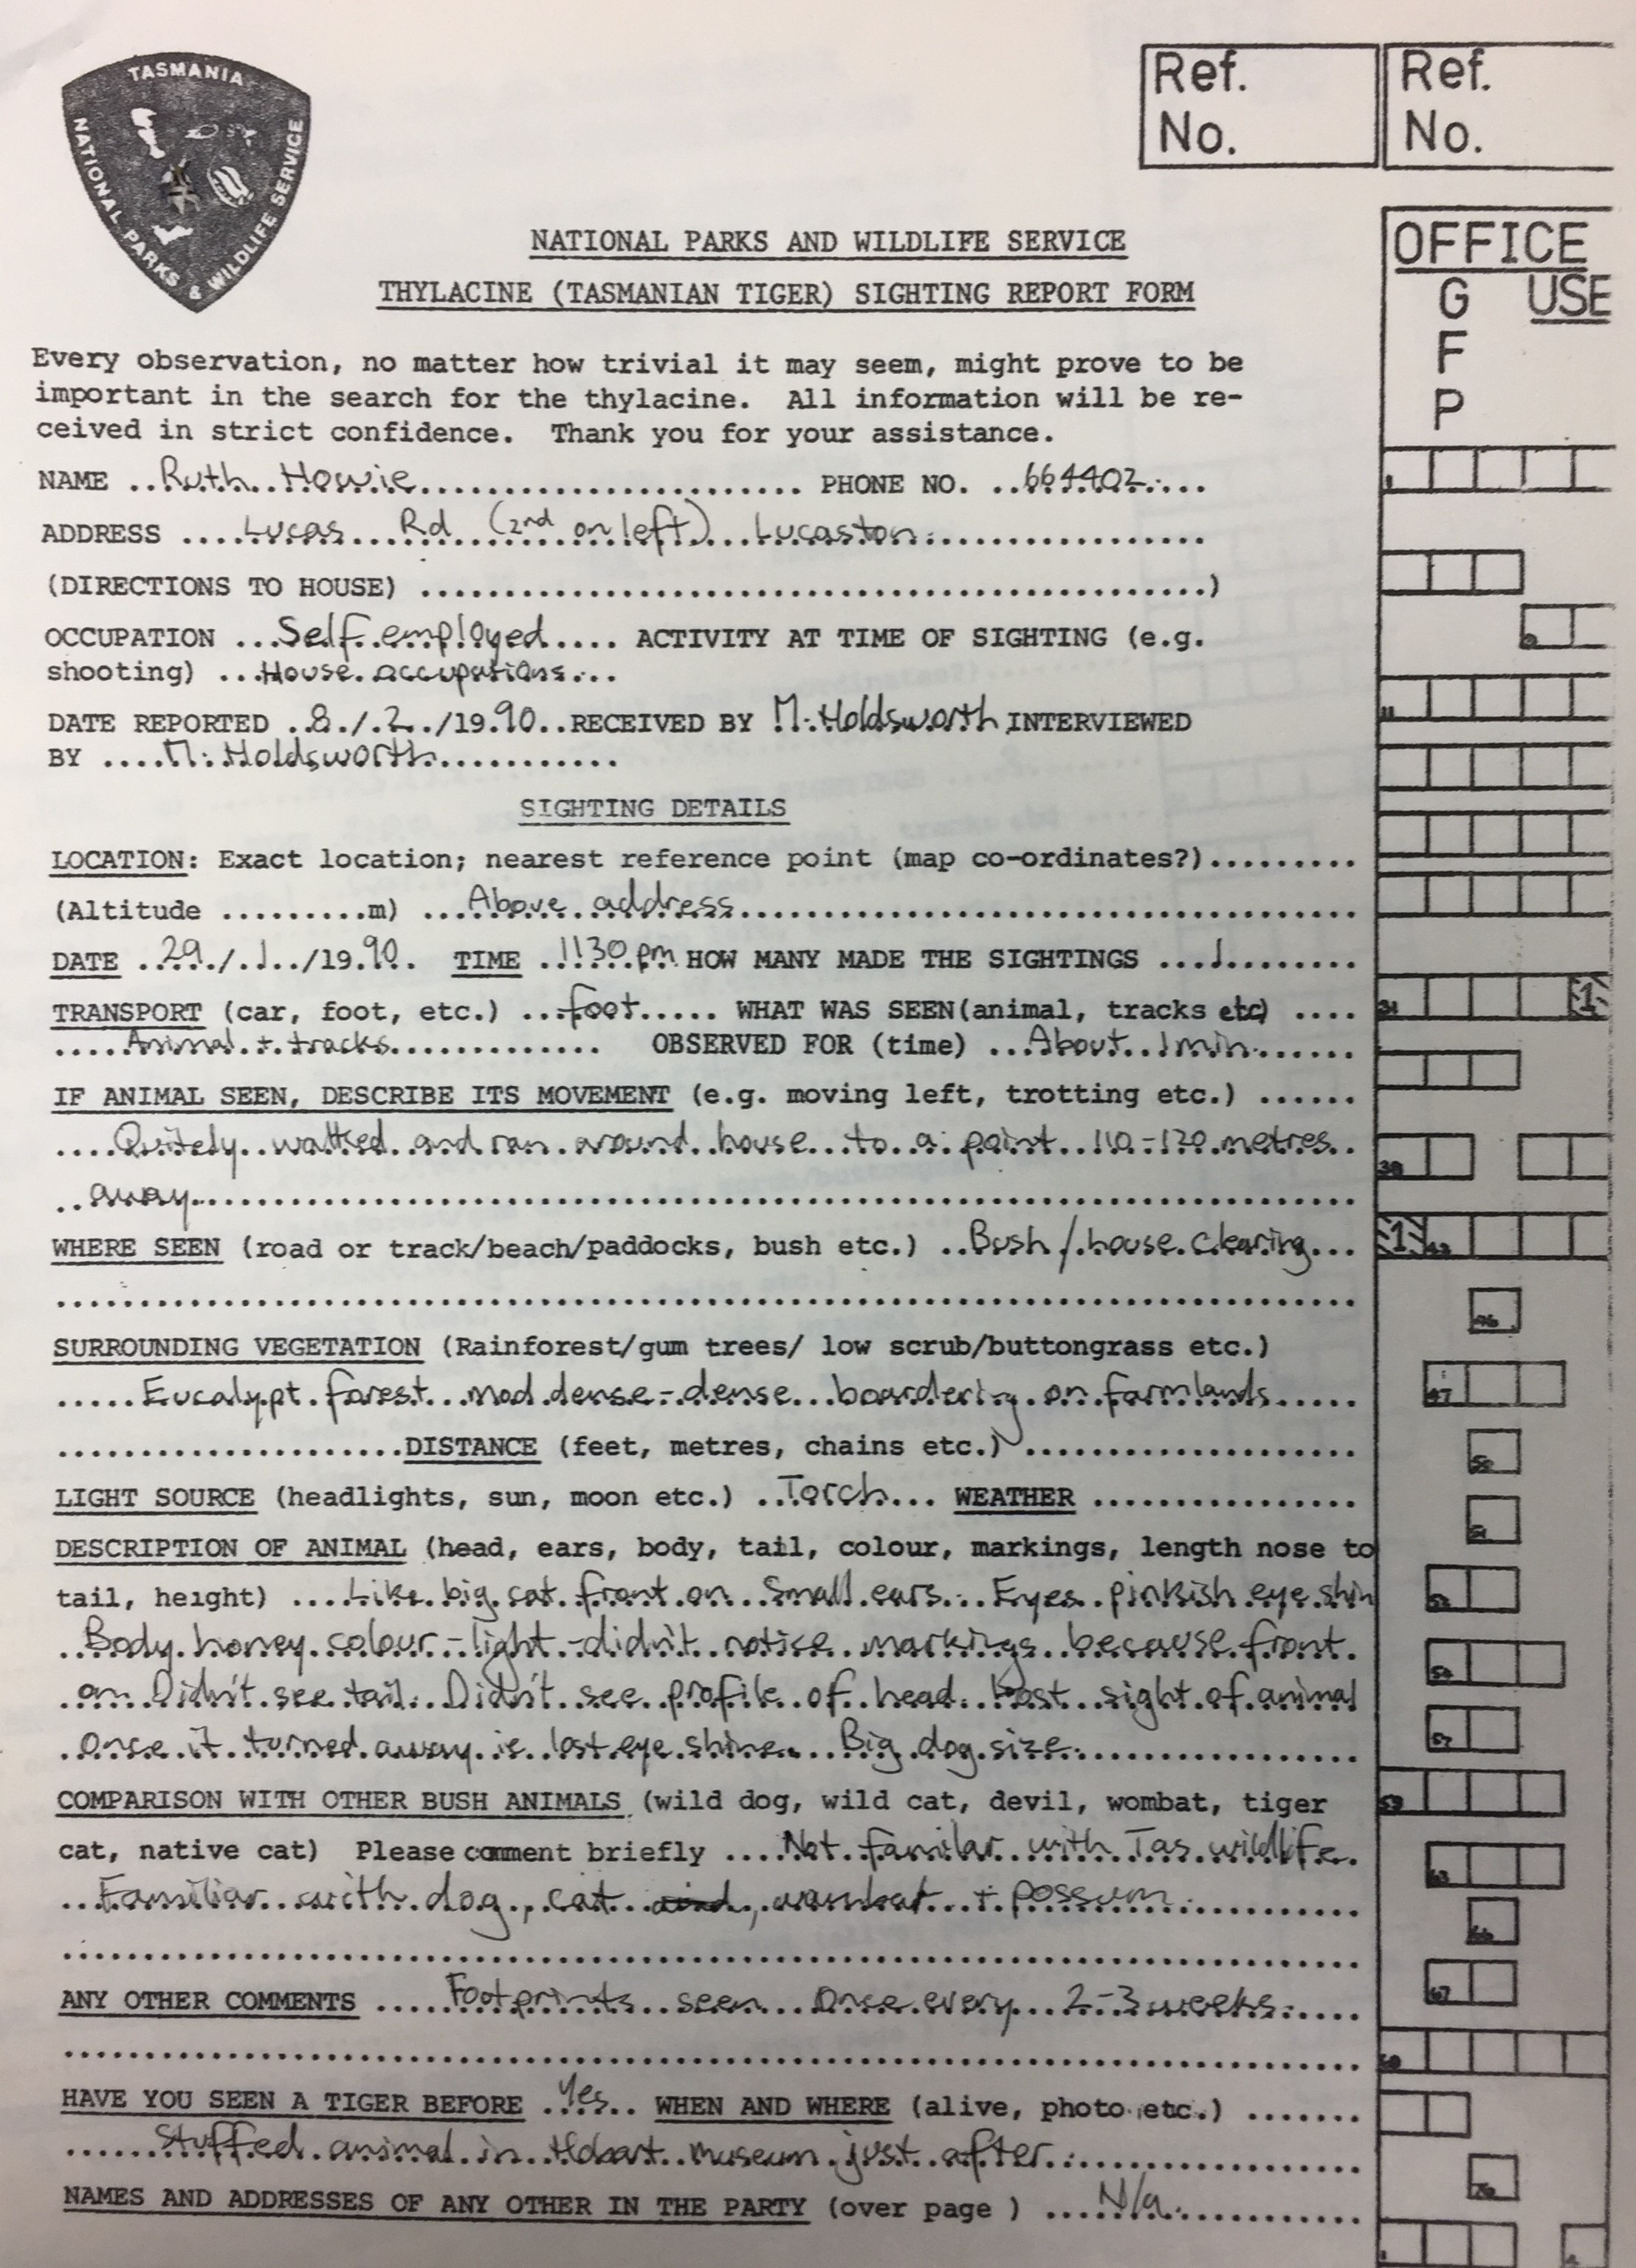 TASMANIA
NATIONAL PARKS & WILDLIFE SERVICE
Ref. No.
Ref. No.
OFFICE USE
G
F
P
NATIONAL PARKS AND WILDLIFE SERVICE
THYLACINE (TASMANIAN TIGER) SIGHTING REPORT FORM
Every observation, no matter how trivial it may seem, might prove to be
important in the search for the thylacine. All information will be re-
ceived in strict confidence. Thank you for your assistance.
NAME ..Ruth Howie.......... PHONE NO. ..664402....
ADDRESS ....Lucas Rd (2nd on left) Lucaston..........
(DIRECTIONS TO HOUSE) ....................)
OCCUPATION ...Self employed.... ACTIVITY AT TIME OF SIGHTING (e.g.
shooting) ...House occupations...
DATE REPORTED ..8./.2../19.90..RECEIVED BY M. Holdsworth INTERVIEWED
BY ....M. Holdsworth..........
SIGHTING DETAILS
LOCATION: Exact location; nearest reference point (map co-ordinates?).........
(Altitude .........m) ...Above address..........
DATE ..29./.1../19.90. TIME ..1130 pm HOW MANY MADE THE SIGHTINGS ...1........
TRANSPORT (car, foot, etc.) ...foot..... WHAT WAS SEEN(animal, tracks etc) ....
....Animal + tracks............ OBSERVED FOR (time) ...About 1 min.......
IF ANIMAL SEEN, DESCRIBE ITS MOVEMENT (e.g. moving left, trotting etc.) ......
....Quitely walked and ran around house to a point 110-120 metres..
..away..........
WHERE SEEN (road or track/beach/paddocks, bush etc.) ..Bush / house clearing...
SURROUNDING VEGETATION (Rainforest/gum trees/ low scrub/buttongrass etc.)
.....Eucalypt forest mod dense - dense boardering on farmlands.....
....................DISTANCE (feet, metres, chains etc.)....................
LIGHT SOURCE (headlights, sun, moon etc.) ..Torch... WEATHER ................
DESCRIPTION OF ANIMAL (head, ears, body, tail, colour, markings, length nose to
tail, height) ....Like big cat front on Small ears. Eyes pinkish eye shin
..Body honey colour - light - didn't notise markings because front.
.on Didn't see tail. Didn't see profile of head. Lost sight of animal
.once it turned away ie lost eye shine. Big dog size...............
COMPARISON WITH OTHER BUSH ANIMALS (wild dog, wild cat, devil, wombat, tiger
cat, native cat) Please comment briefly ....Not familar with Tas wildlife.
...Familiar with dog, cat and, wombat + possum..........
ANY OTHER COMMENTS .....Footprints seen Once every 2-3 weeks.....
HAVE YOU SEEN A TIGER BEFORE ..Yes.. WHEN AND WHERE (alive, photo etc.) .......
......Stuffed animal in Hobart museum just after...............
NAMES AND ADDRESSES OF ANY OTHER IN THE PARTY (over page ) ....N/a...........